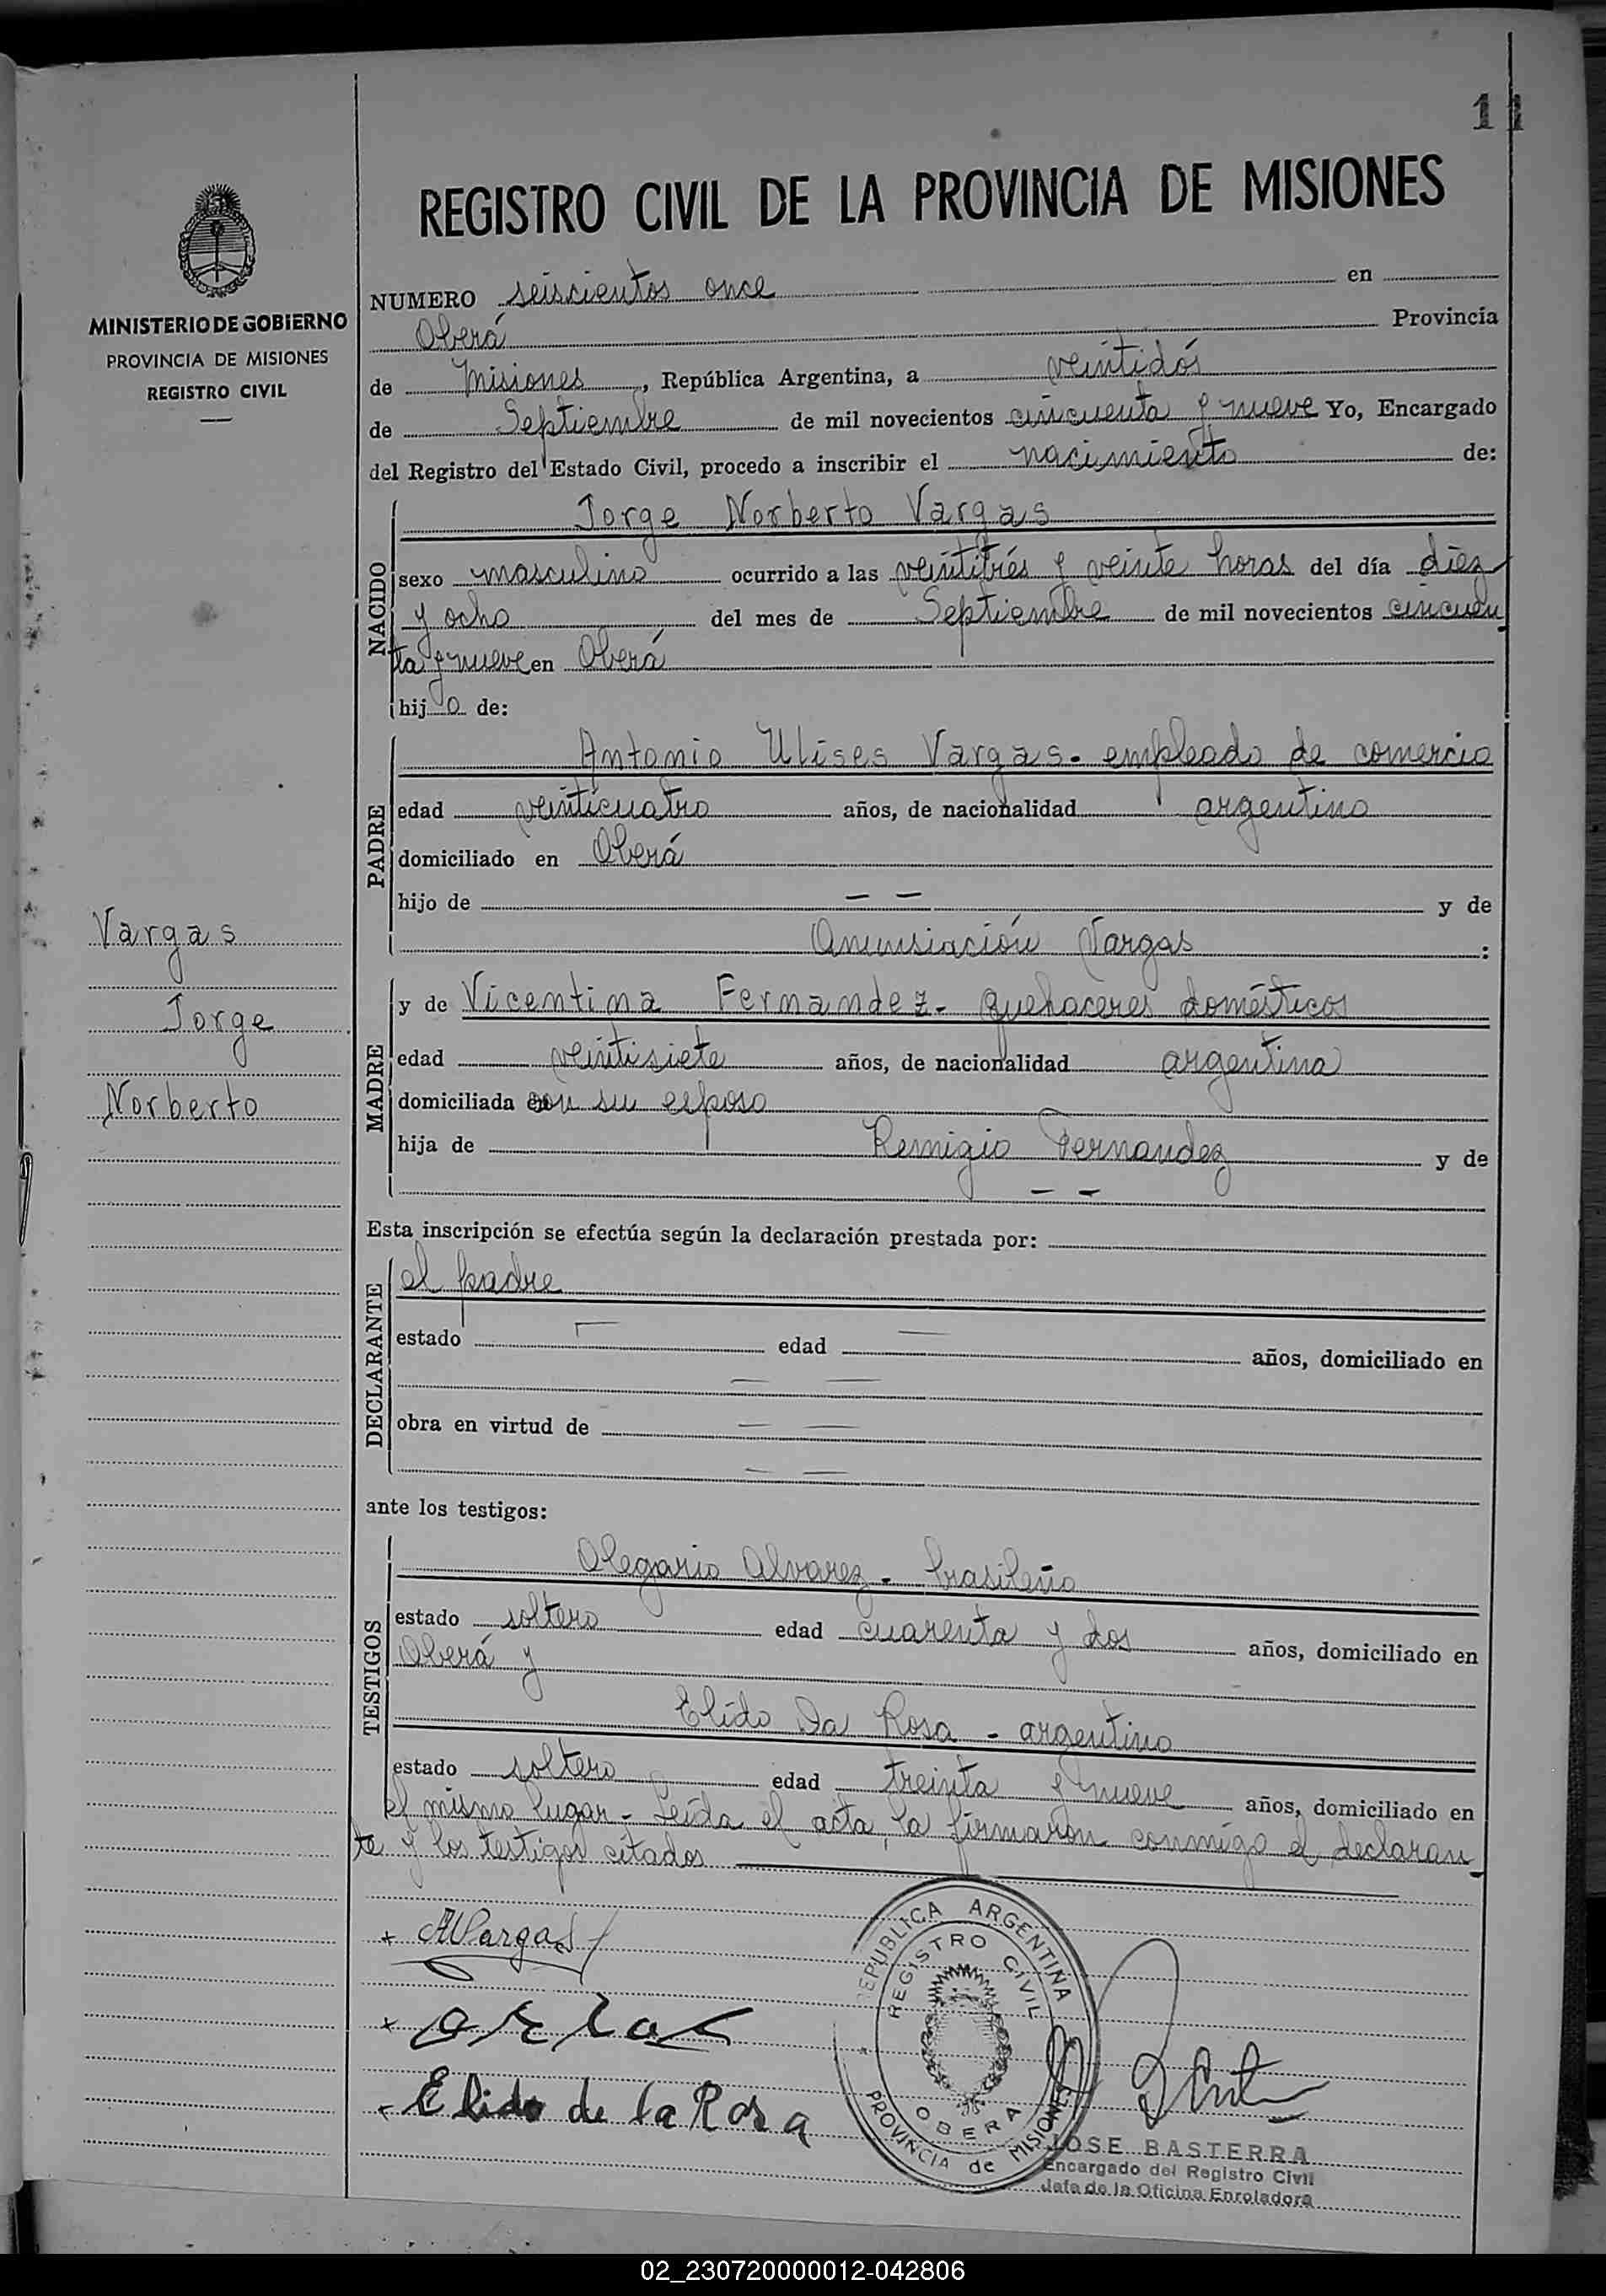 11
REGISTRO CIVIL DE LA PROVINCIA DE MISIONES
MINISTERIO DE GOBIERNO
PROVINCIA DE MISIONES
REGISTRO CIVIL
NUMERO seiscientos once en
Oberá Provincia
de Misiones, República Argentina, a veintidós
de Septiembre de mil novecientos cincuenta y nueve Yo, Encargado
del Registro del Estado Civil, procedo a inscribir el nacimiento de:
NACIDO
Jorge Norberto Vargas
sexo masculino ocurrido a las veintitrés y veinte horas del día diez
y ocho del mes de Septiembre de mil novecientos cincuen
ta y nueve en Oberá
hijo de:
PADRE
Antonio Ulises Vargas - empleado de comercio
edad veinticuatro años, de nacionalidad argentino
domiciliado en Oberá
hijo de — — y de
Anunsiación Vargas :
Vargas
Jorge
Norberto
MADRE
y de Vicentina Fernandez - quehaceres domésticos
edad veintisiete años, de nacionalidad argentina
domiciliada con su esposo
hija de Remigio Fernandez y de
— —
Esta inscripción se efectúa según la declaración prestada por:
DECLARANTE
el padre
estado — edad — años, domiciliado en
— —
obra en virtud de — —
— —
ante los testigos:
TESTIGOS
Olegario Alvarez - brasileño
estado soltero edad cuarenta y dos años, domiciliado en
Oberá y
Elido Da Rosa - argentino
estado soltero edad treinta y nueve años, domiciliado en
el mismo lugar - Leída el acta, la firmaron conmigo el declaran
te y los testigos citados
AVargas
Elido de la Rosa
REPUBLICA ARGENTINA
REGISTRO CIVIL
OBERA
PROVINCIA de MISIONES
JOSE BASTERRA
Encargado del Registro Civil
Jefe de la Oficina Enroladora
02_230720000012-042806